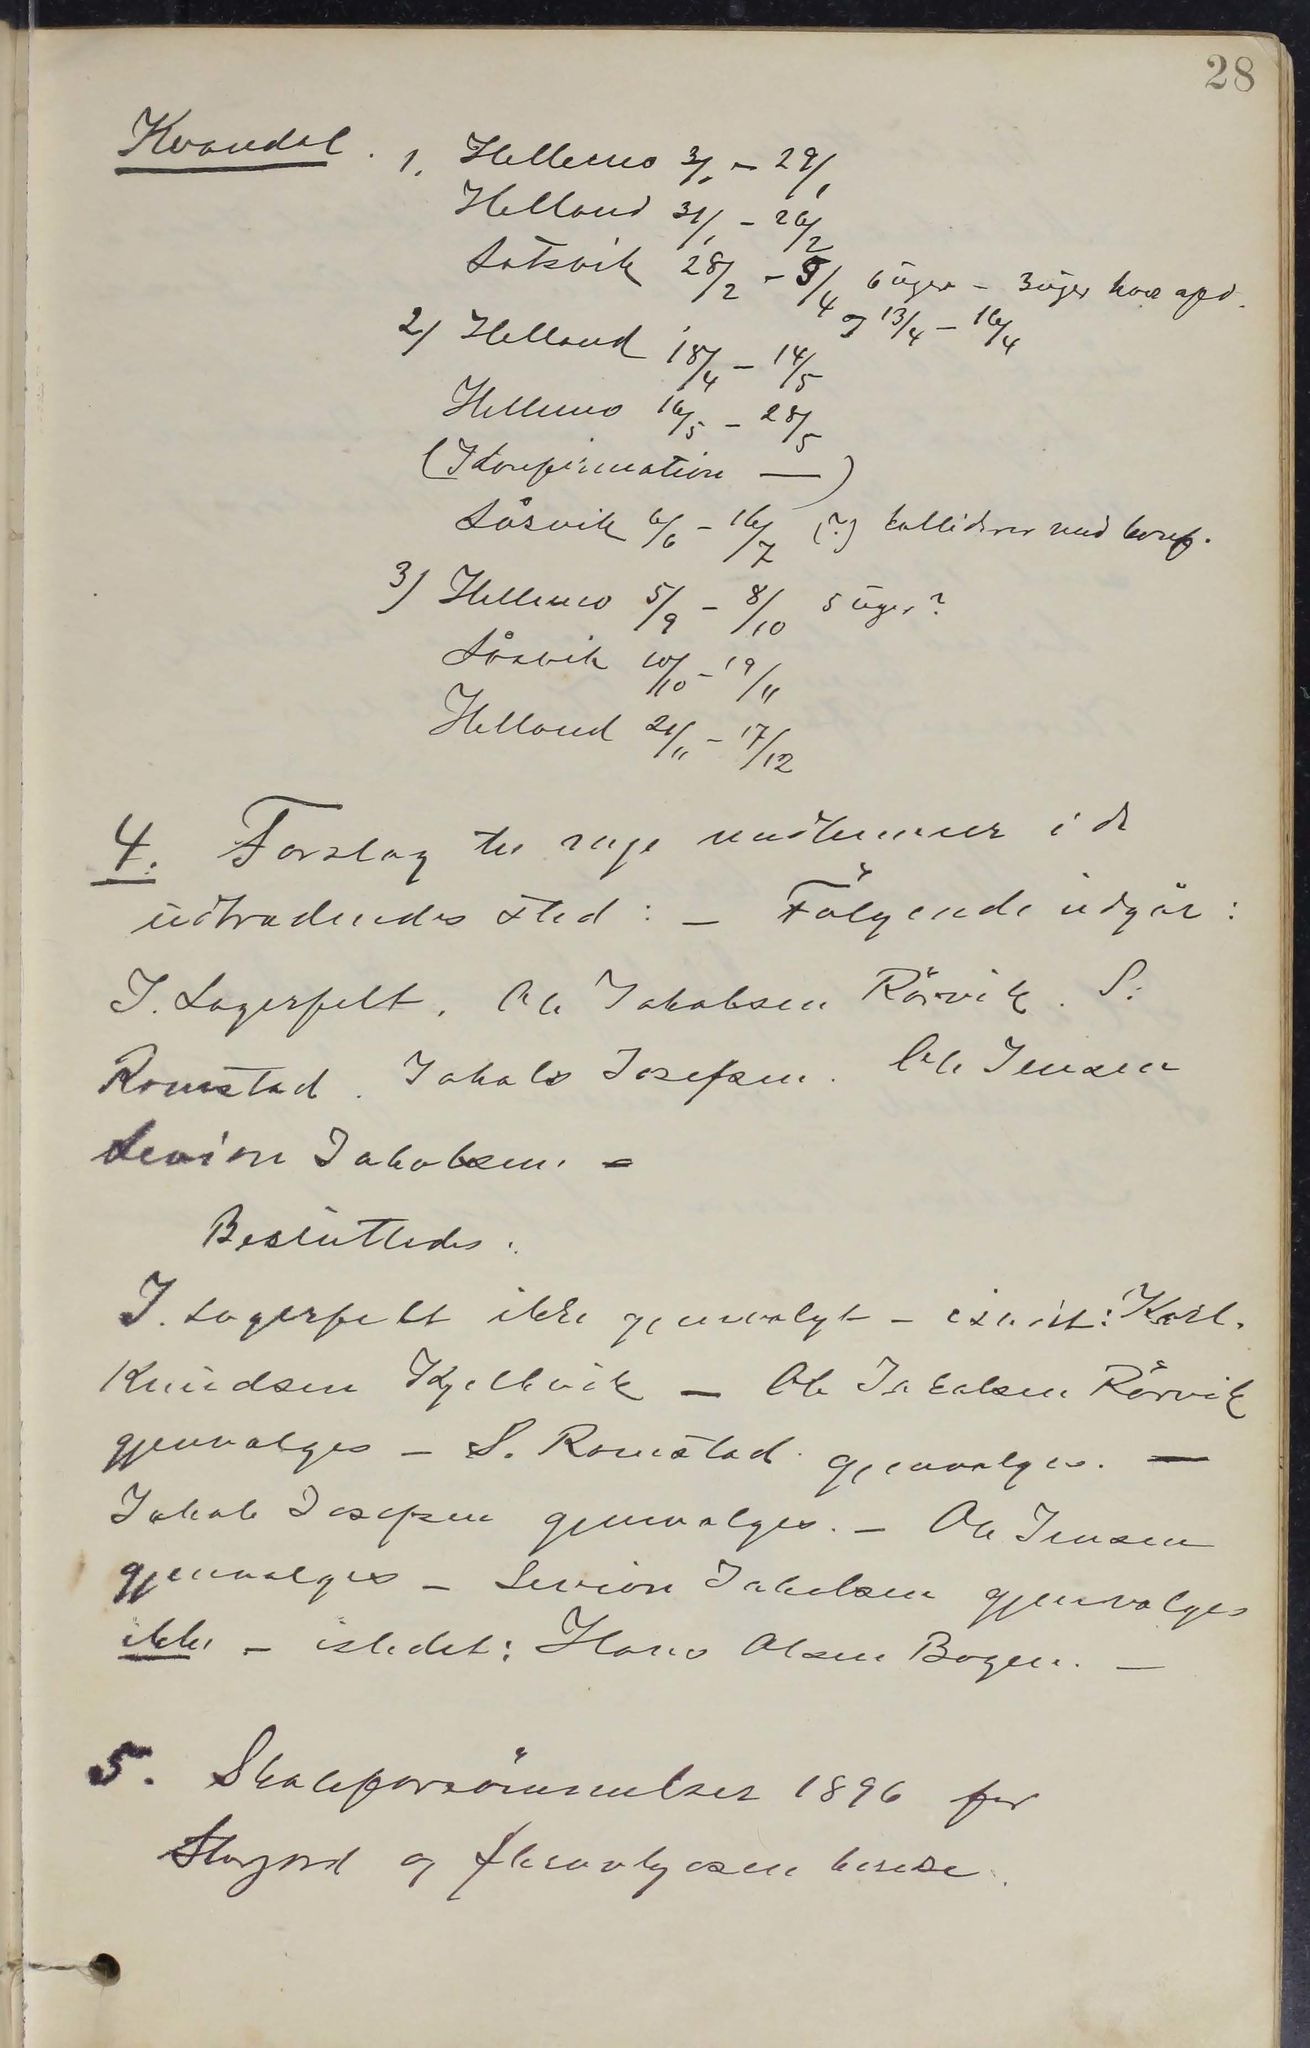 28
Kvandal. 1. Hellemo 3/1 - 29/1
Helland 31/1 - 26/2
Låtsvik 28/2 - 9/4 6 uger - 3 uger hver afd.
og 13/4 - 16/4
2) Helland 18/4 - 14/5
Hellemo 16/5 - 28/5
(Konfirmation — )
Låsvik 6/6 - 16/7 (?) kolliderer med konf.
3) Hellemo 5/9 - 8/10 5 uger?
Låsvik 10/10 - 19/11
Helland 21/11 - 17/12
4. Forslag til nye medlemmer i de
udtrædendes sted: - Følgende udgår:
J. Lagerfelt. Ole Jakobsen Rörvik. S.
Romstad. Jakob Josefsen. Ole Jensen
Levion Jakobsen. -
Besluttedes:
J. Lagerfelt ikke gjenvalgt - isteddet: Karl.
Knudsen Kjelkvik - Ole Jakobsen Rörvik
gjenvalges - S. Romstad gjenvalges. -
Jakob Josefsen gjenvalges. - Ole Jensen
gjenvalges - Levion Jakobsen gjenvalges
ikke - istedet: Hans Olsen Bogen. -
5. Skoleforsömmelser 1896 for
Storjord og kredse.